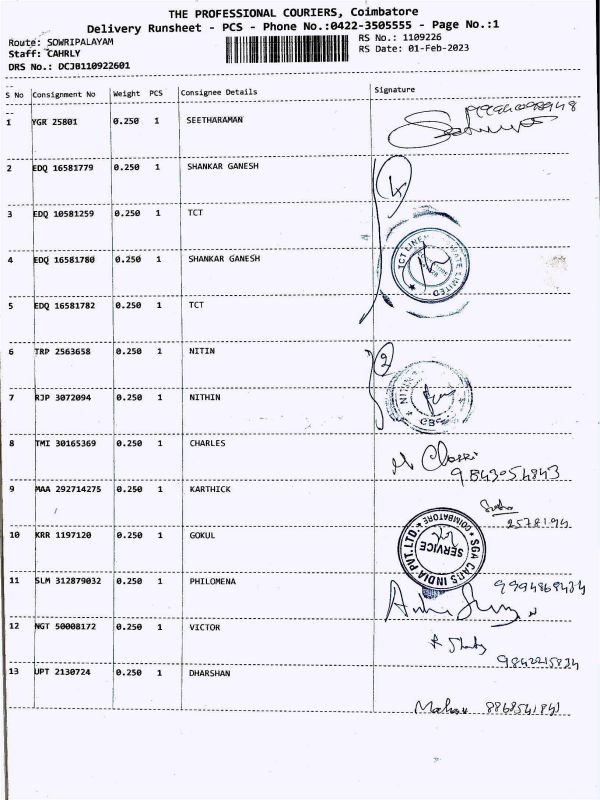 THE PROFESSIONAL COURIERS, Coimbatore
Delivery Runsheet - PCS - Phone No.:0422-3505555 - Page No.:1
Route: SOWRIPALAYAM
RS No.: 1109226
Staff: CAHRLY
RS Date: 01-Feb-2023
DRS No.: DCJB110922601
S No Consignment No Weight PCS Consignee Details Signature
1 YGR 25801 0.250 1 SEETHARAMAN
2 EDQ 16581779 0.250 1 SHANKAR GANESH
4
3 EDQ 10581259 0.250 1 TCT
4 EDQ 16581780 0.250 1 SHANKAR GANESH
5 EDQ 16581782 0.250 1 TCT
6 TRP 2563658 0.250 1 NITIN
2
7 RJP 3072094 0.250 1 NITHIN
8 TMI 30165369 0.250 1 CHARLES
9843054843
9 MAA 292714275 0.250 1 KARTHICK
2578194
10 KRR 1197120 0.250 1 GOKUL
SGA CARS INDIA PVT.LTD.
COIMBATORE
SERVICE
11 SLM 312879032 0.250 1 PHILOMENA
9994869434
12 NGT 50008172 0.250 1 VICTOR
9842215834
13 UPT 2130724 0.250 1 DHARSHAN
8868541841